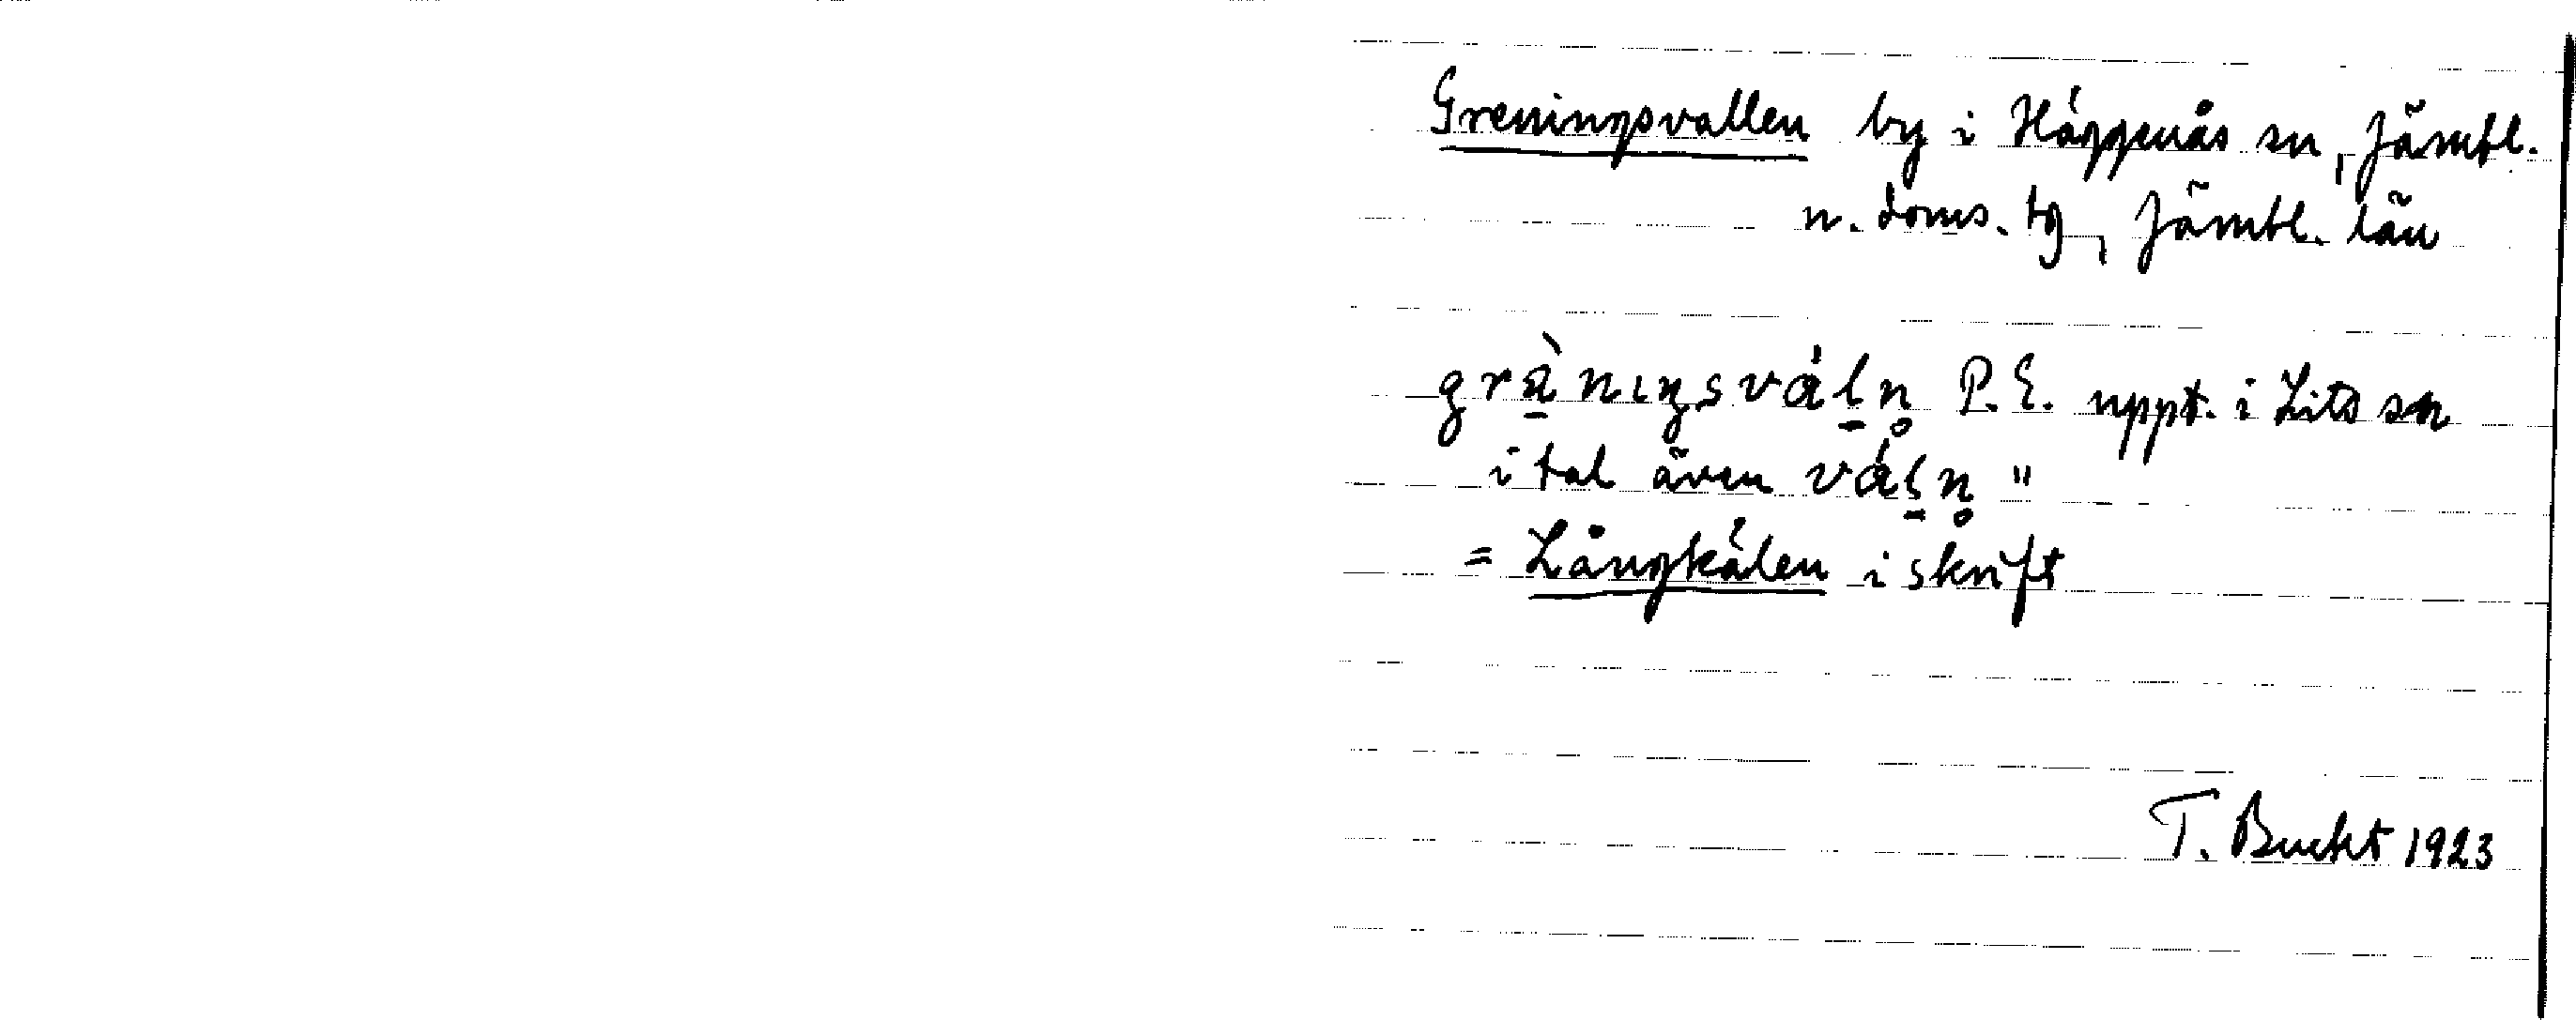 Greningsvallen by i Häggenås sn, Jämtl.
n. doms. tg, Jämtl. län
grä̀nıŋsváln̥ P.E. uppt. i Lits sn
i tal även váln̥ "
= Långkälen i skrift
T. Bucht 1923